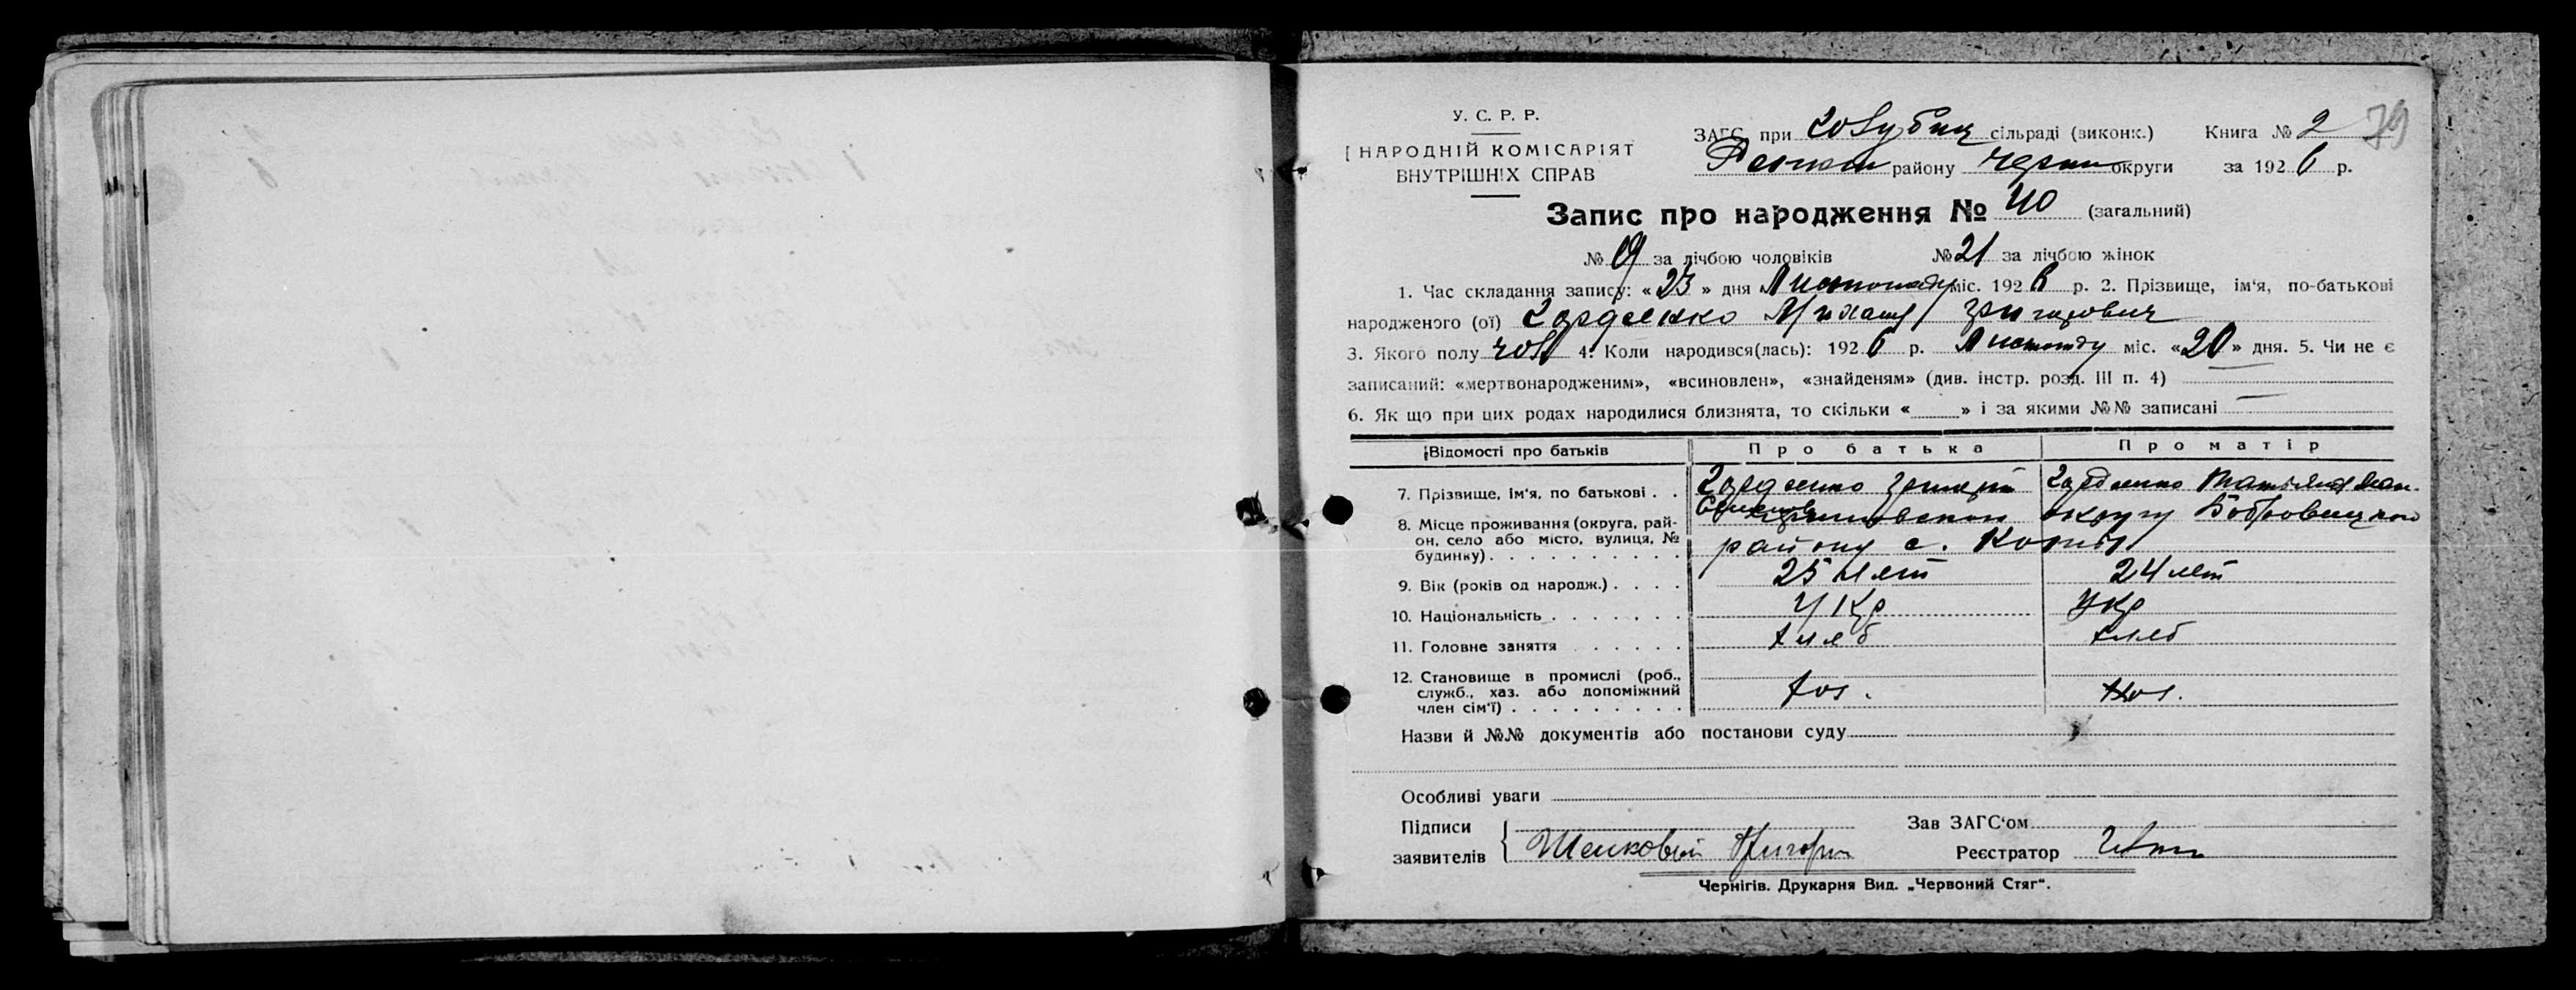 79
У. С. Р. Р.
НАРОДНІЙ КОМІСАРІЯТ
ВНУТРІШНІХ СПРАВ
ЗАГС при Голубиц сільраді (виконк.) Книга № 2
району Черниг округи за 1926 р.
Запис про народження № 40 (загальний)
№ 19 за лічбою чоловіків № 21 за лічбою жінок
1. Час складання запису: « 23 » дня Листопаду міс. 1926 р. 2. Прізвище, ім‘я, по-батькові
народженого (ої) Гордиенко Михаил Григорович
3. Якого полу чол 4. Коли народився(лась): 1926 р. Листопаду міс. «20» дня. 5. Чи не є
записаний: «мертвонародженим», «всиновлен», «знайденям» (див. інстр. розд. III п. 4)
6. Як що при цих родах народилися близнята, то скільки « » і за якими №№ записані
Відомості про батьків Про батька Про матір
7. Прізвище, ім‘я, по батькові . . Гордиенко Григорій Гордиенко Татіяна
8. Місце проживання (округа, рай-
он, село або місто, вулиця, №
будинку) . . . . . . . . . . округу Бобровицкого
району с.
9. Вік (років од народж.) . . . . 25 лет 24 лет
10. Національність . . . . . . . Укр Укр
11. Головне заняття . . . . . . хлеб хлеб
12. Становище в промислі (роб.,
служб., хаз. або допоміжний
член сім‘ї) . . . . . . . . . хоз. хоз.
Назви й №№ документів або постанови суду
Особливі уваги
Підписи
заявителів
Григорий
Зав ЗАГС‘ом
Реєстратор
Чернігів. Друкарня Вид. „Червоний Стяг“.